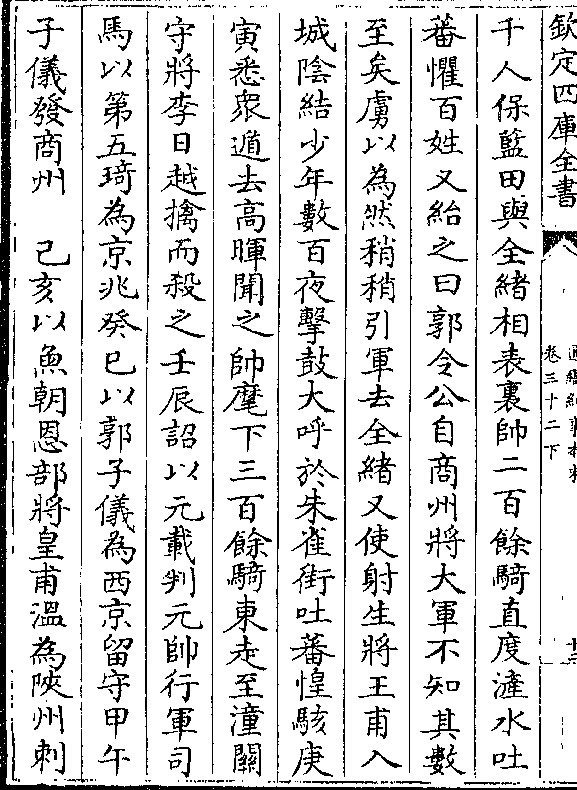 欽定四庫全書
通鑑紀事本末
卷三十二下
千人保藍田與全緒相表裏帥二百餘騎直度滻水吐
蕃懼百姓又紿之曰郭令公自商州將大軍不知其數
至矣虜以為然稍稍引軍去全緒又使射生將王甫入
城陰結少年數百夜擊鼓大呼於朱雀街吐蕃惶駭庚
寅悉衆遁去高暉聞之帥麾下三百餘騎東走至潼關
守將李日越擒而殺之壬辰詔以元載判元帥行軍司
馬以第五琦為京兆癸巳以郭子儀為西京留守甲午
子儀發商州　己亥以魚朝恩部將皇甫溫為陜州刺